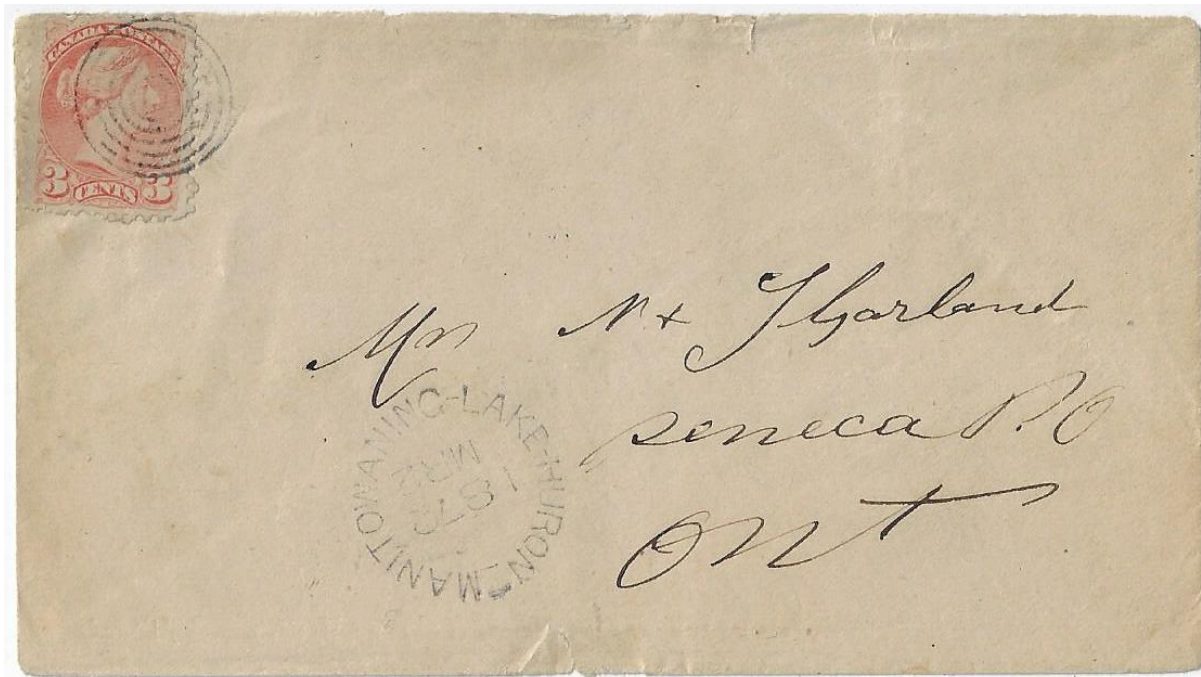 CANADA POSTAGE
3 CENTS 3
Mr N + J Garland
Seneca P.O
Ont
MANITOWANING-LAKE-HURON
MR 2